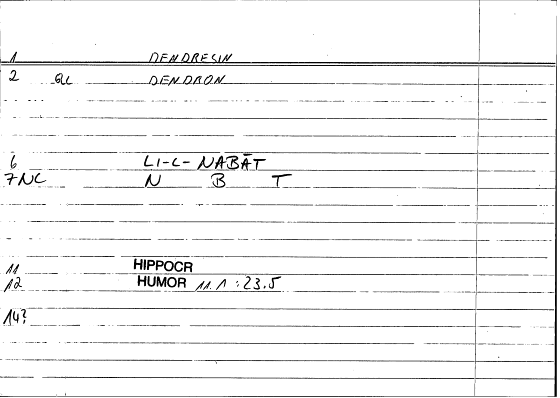 1 DENDRESIN
2 GLL DENDRON
6 LI-L-NABĀT
7NC N B T
11 HIPPOCR
12 HUMOR 11.1:23.5
14?